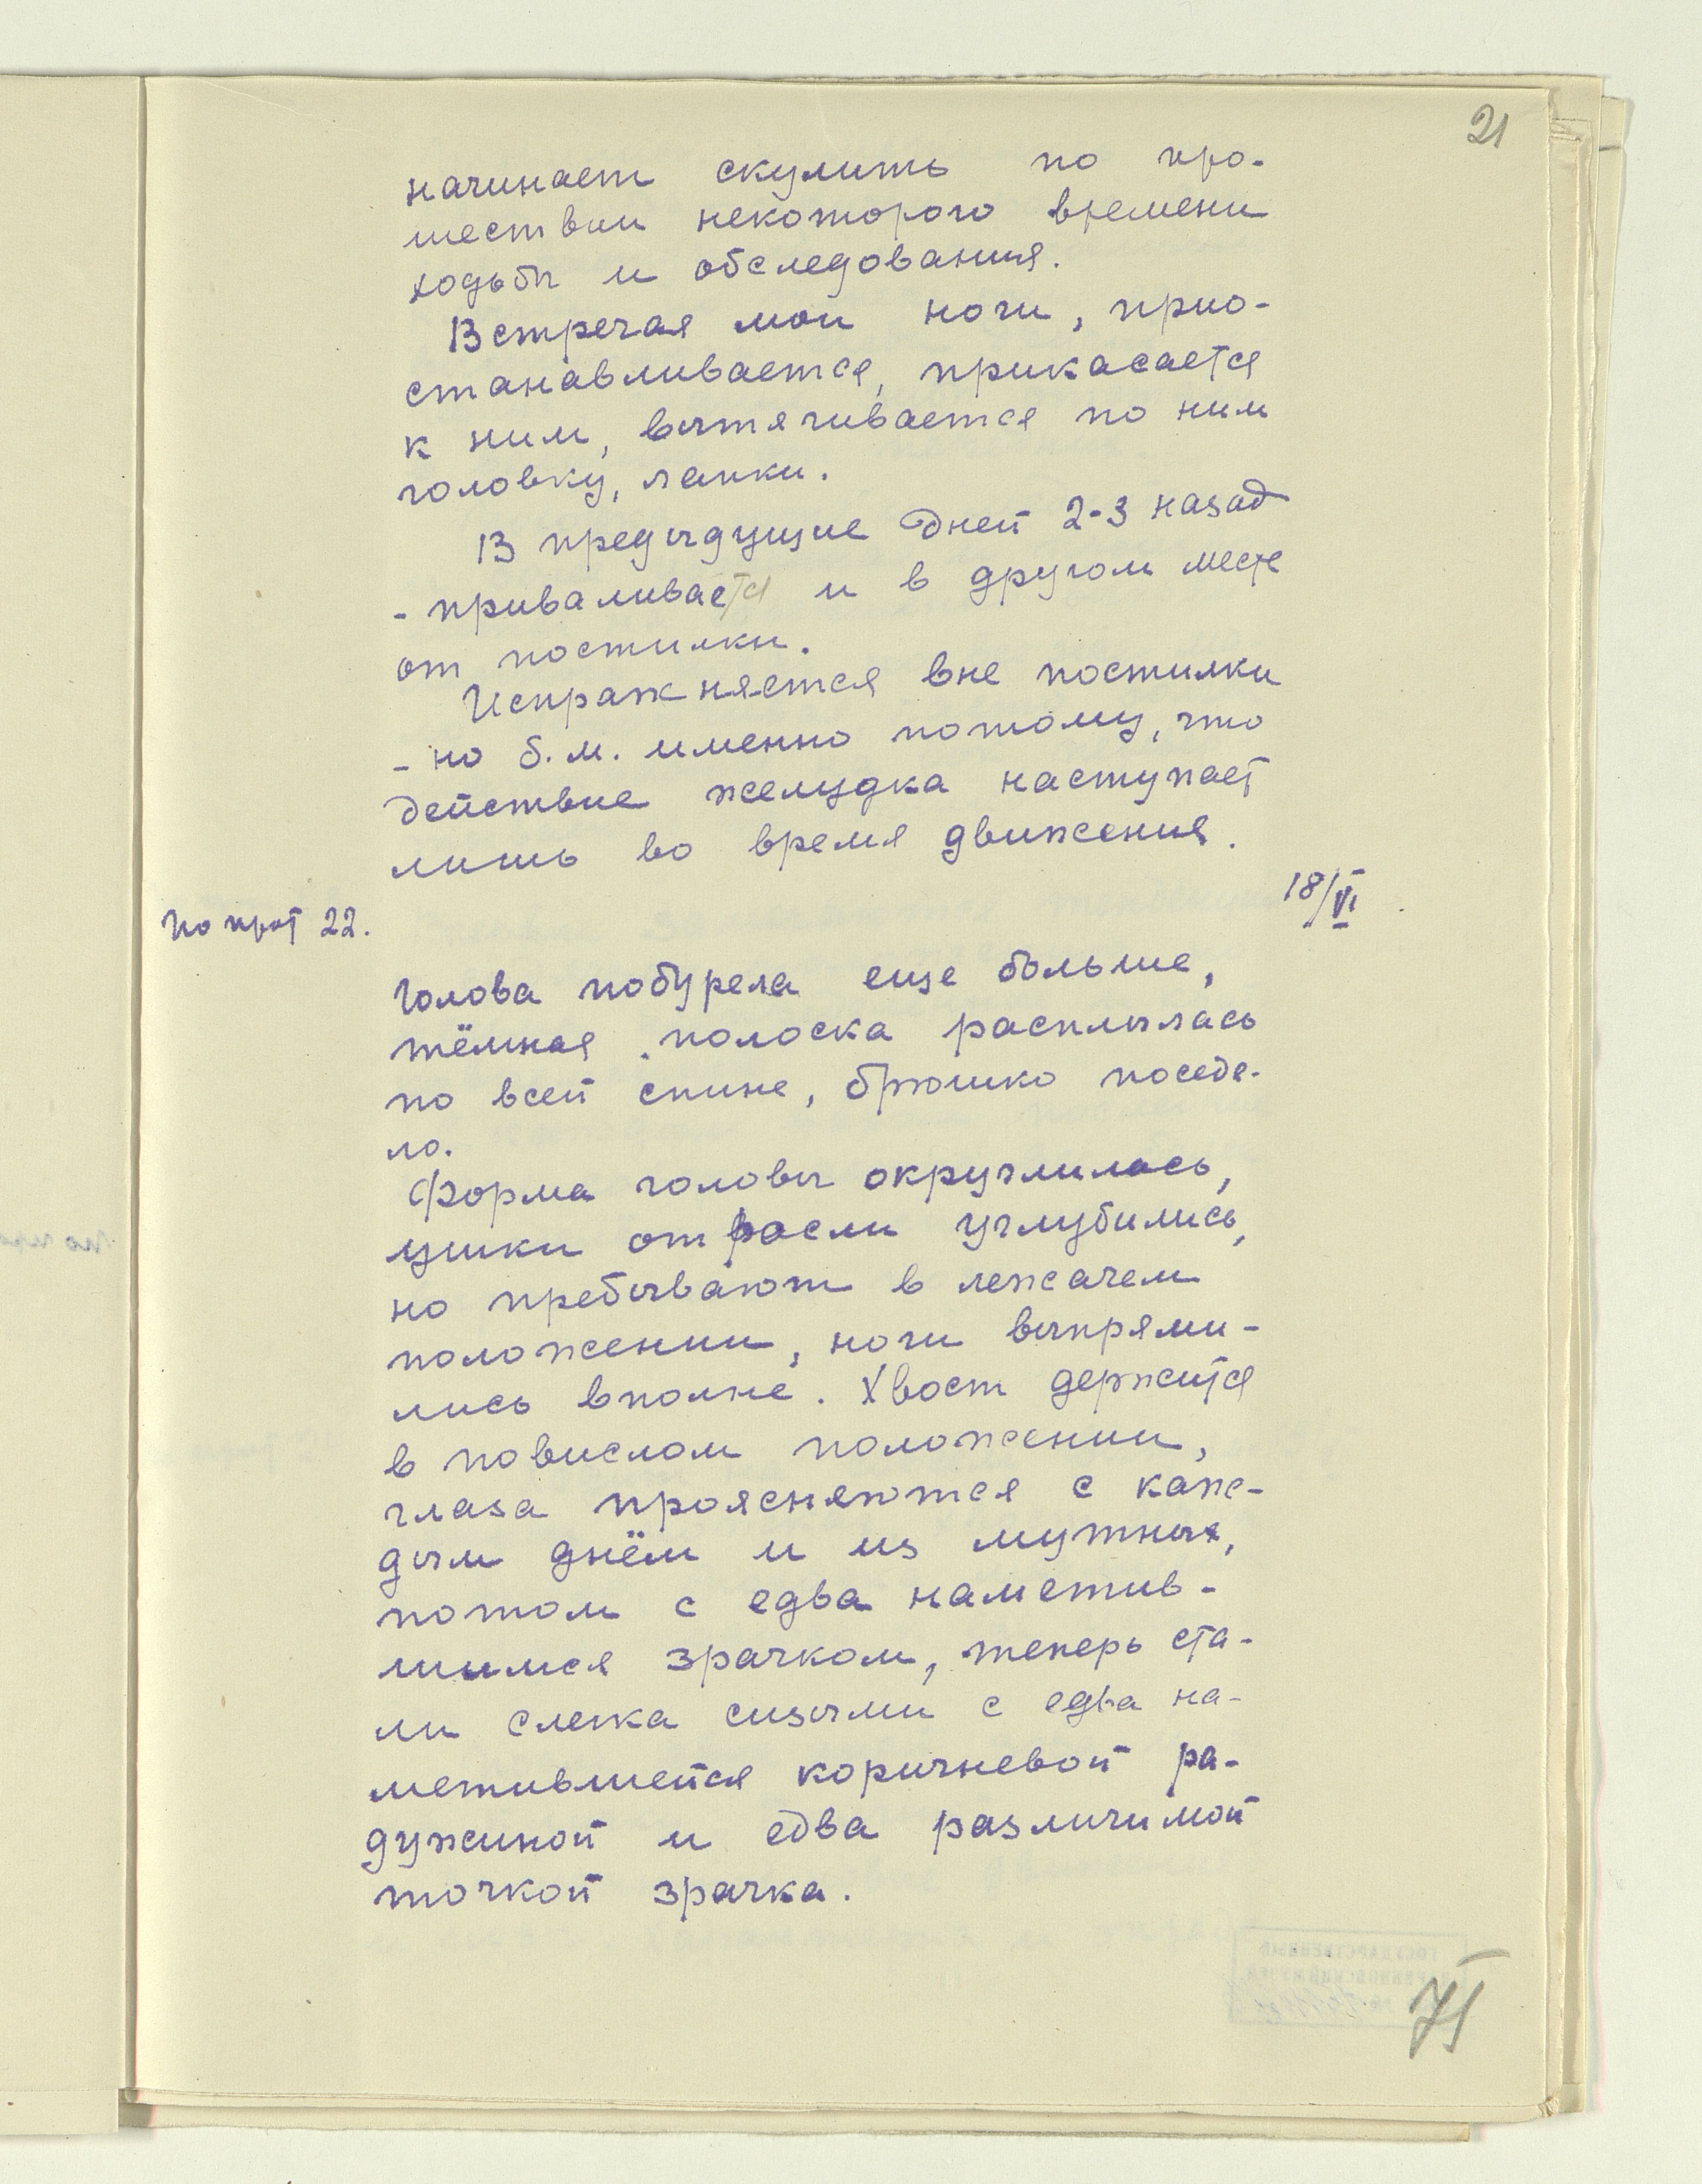 21
начинает скулить по про-
шествии некоторого времени
ходьбы и обследования.
Встречая мои ноги, прио-
станавливается, прикасается
к ним, вытягивается по ним
головку, лапки.
В предыдущие дней 2-3 назад
- приваливается и в другом месте
от постилки.
Испражняется вне постилки
- но б.м. именно потому, что
действие желудка наступает
лишь во время движения.
18/VI
По прот 22.
Голова побурела еще больше,
тёмная полоска расплылась
по всей спине, брюшко поседе-
ло.
Форма головы округлилась,
ушки отросли углубились,
но пребывают в лежачем
положении, ноги выпрями-
лись вполне. Хвост держится
в повислом положении,
глаза проясняются с каж-
дым днём и из мутных,
потом с едва наметив-
шимся зрачком, теперь ста-
ли слегка сизыми с едва на-
метившейся коричневой ра-
дужиной и едва различимой
точкой зрачка.
71